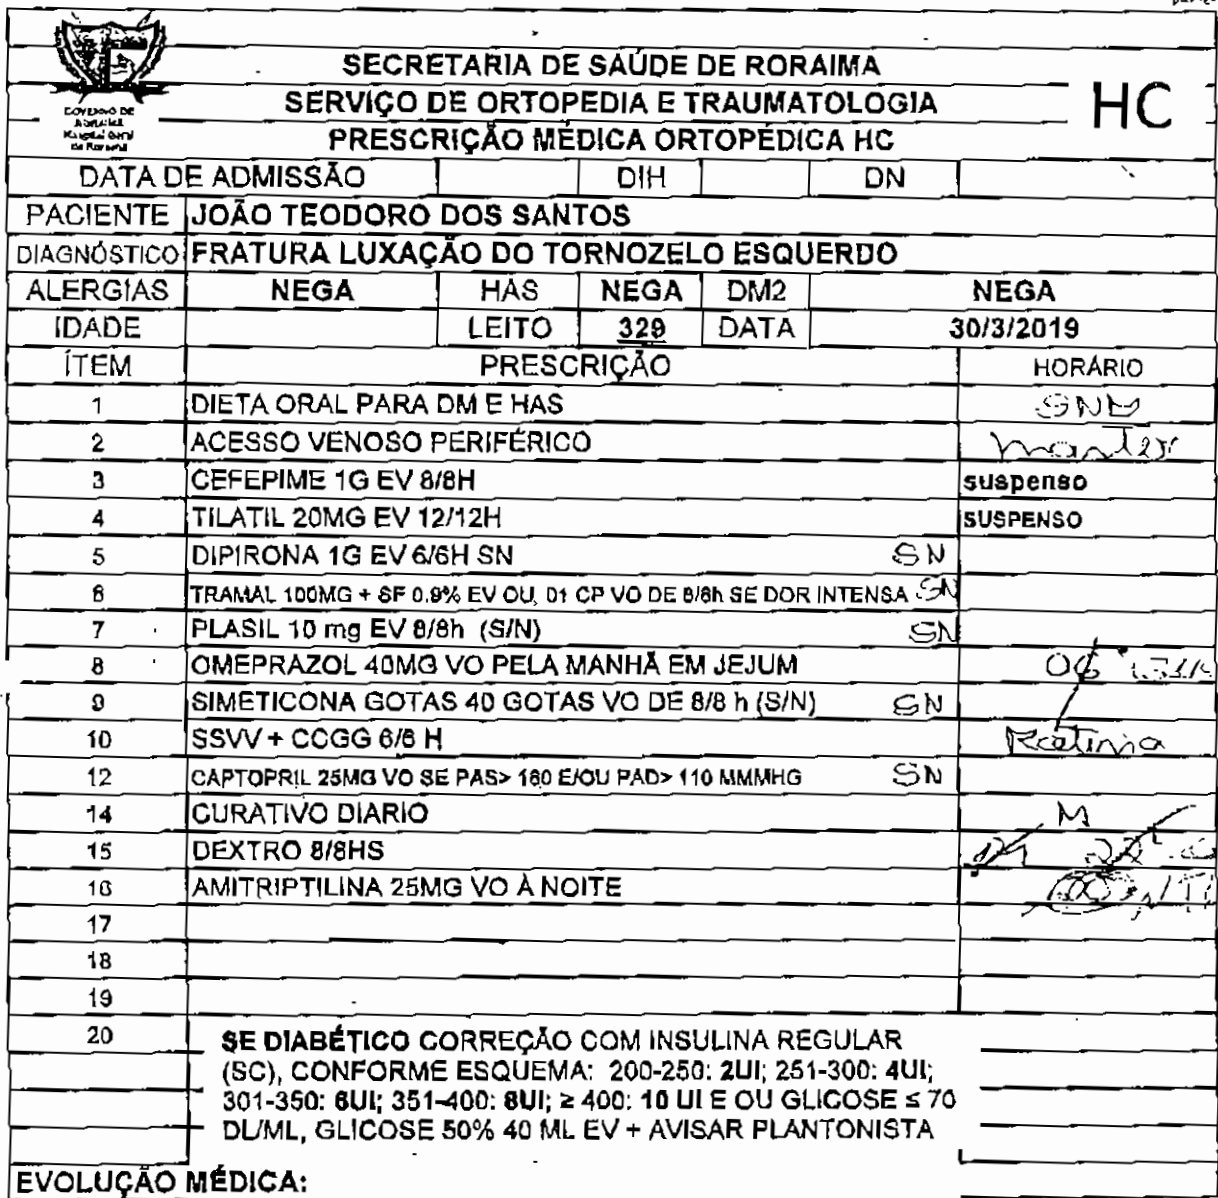 SECRETARIA DE SAÚDE DE RORAIMA
SERVIÇO DE ORTOPEDIA E TRAUMATOLOGIA
HC
GOVERNO DE
RORAIMA
Hospital Geral
de Roraima
PRESCRIÇÃO MÉDICA ORTOPÉDICA HC
DATA DE ADMISSÃO DIH DN
PACIENTE JOÃO TEODORO DOS SANTOS
DIAGNÓSTICO FRATURA LUXAÇÃO DO TORNOZELO ESQUERDO
ALERGIAS NEGA HAS NEGA DM2 NEGA
IDADE LEITO 329 DATA 30/3/2019
ÍTEM PRESCRIÇÃO HORÁRIO
1 DIETA ORAL PARA DM E HAS SND
2 ACESSO VENOSO PERIFÉRICO manter
3 CEFEPIME 1G EV 8/8H suspenso
4 TILATIL 20MG EV 12/12H SUSPENSO
5 DIPIRONA 1G EV 6/6H SN SN
6 TRAMAL 100MG + SF 0.9% EV OU, 01 CP VO DE 8/8h SE DOR INTENSA SN
7 PLASIL 10 mg EV 8/8h (S/N) SN
8 OMEPRAZOL 40MG VO PELA MANHÃ EM JEJUM 06
9 SIMETICONA GOTAS 40 GOTAS VO DE 8/8 h (S/N) SN
10 SSVV + CCGG 6/6 H Rotina
12 CAPTOPRIL 25MG VO SE PAS> 160 E/OU PAD> 110 MMMHG SN
14 CURATIVO DIARIO M
15 DEXTRO 8/8HS 22
16 AMITRIPTILINA 25MG VO À NOITE
17
18
19
20 SE DIABÉTICO CORREÇÃO COM INSULINA REGULAR
(SC), CONFORME ESQUEMA: 200-250: 2UI; 251-300: 4UI;
301-350: 6UI; 351-400: 8UI; ≥ 400: 10 UI E OU GLICOSE ≤ 70
DL/ML, GLICOSE 50% 40 ML EV + AVISAR PLANTONISTA
EVOLUÇÃO MÉDICA: